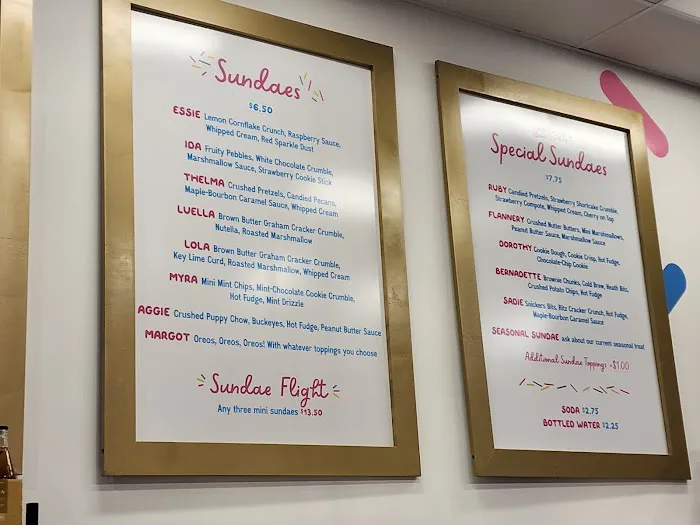 Sundaes
$6.50
ESSIE Lemon Cornflake Crunch, Raspberry Sauce,
Whipped Cream, Red Sparkle Dust
IDA Fruity Pebbles, White Chocolate Crumble,
Marshmallow Sauce, Strawberry Cookie Stick
THELMA Crushed Pretzels, Candied Pecans,
Maple-Bourbon Caramel Sauce, Whipped Cream
LUELLA Brown Butter Graham Cracker Crumble,
Nutella, Roasted Marshmallow
LOLA Brown Butter Graham Cracker Crumble,
Key Lime Curd, Roasted Marshmallow, Whipped Cream
MYRA Mini Mint Chips, Mint-Chocolate Cookie Crumble,
Hot Fudge, Mint Drizzle
AGGIE Crushed Puppy Chow, Buckeyes, Hot Fudge, Peanut Butter Sauce
MARGOT Oreos, Oreos, Oreos! With whatever toppings you choose
Sundae Flight
Any three mini sundaes $13.50
Special Sundaes
$7.75
RUBY Candied Pretzels, Strawberry Shortcake Crumble,
Strawberry Compote, Whipped Cream, Cherry on Top
FLANNERY Crushed Nutter Butters, Mini Marshmallows,
Peanut Butter Sauce, Marshmallow Sauce
DOROTHY Cookie Dough, Cookie Crisp, Hot Fudge,
Chocolate-Chip Cookie
BERNADETTE Brownie Chunks, Cold Brew, Heath Bits,
Crushed Potato Chips, Hot Fudge
SADIE Snickers Bits, Ritz Cracker Crunch, Hot Fudge,
Maple-Bourbon Caramel Sauce
SEASONAL SUNDAE ask about our current seasonal treat
Additional Sundae Toppings +$1.00
SODA $2.75
BOTTLED WATER $2.25